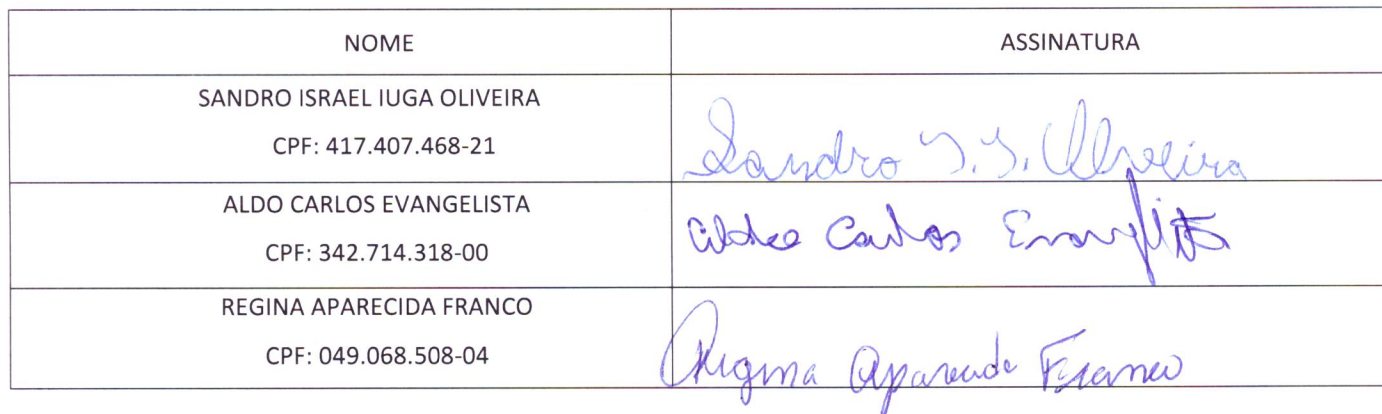 NOME ASSINATURA
SANDRO ISRAEL IUGA OLIVEIRA
CPF: 417.407.468-21
Sandro I. I. Oliveira
ALDO CARLOS EVANGELISTA
CPF: 342.714.318-00
Aldo Carlos Evangelista
REGINA APARECIDA FRANCO
CPF: 049.068.508-04
Regina Aparecida Franco